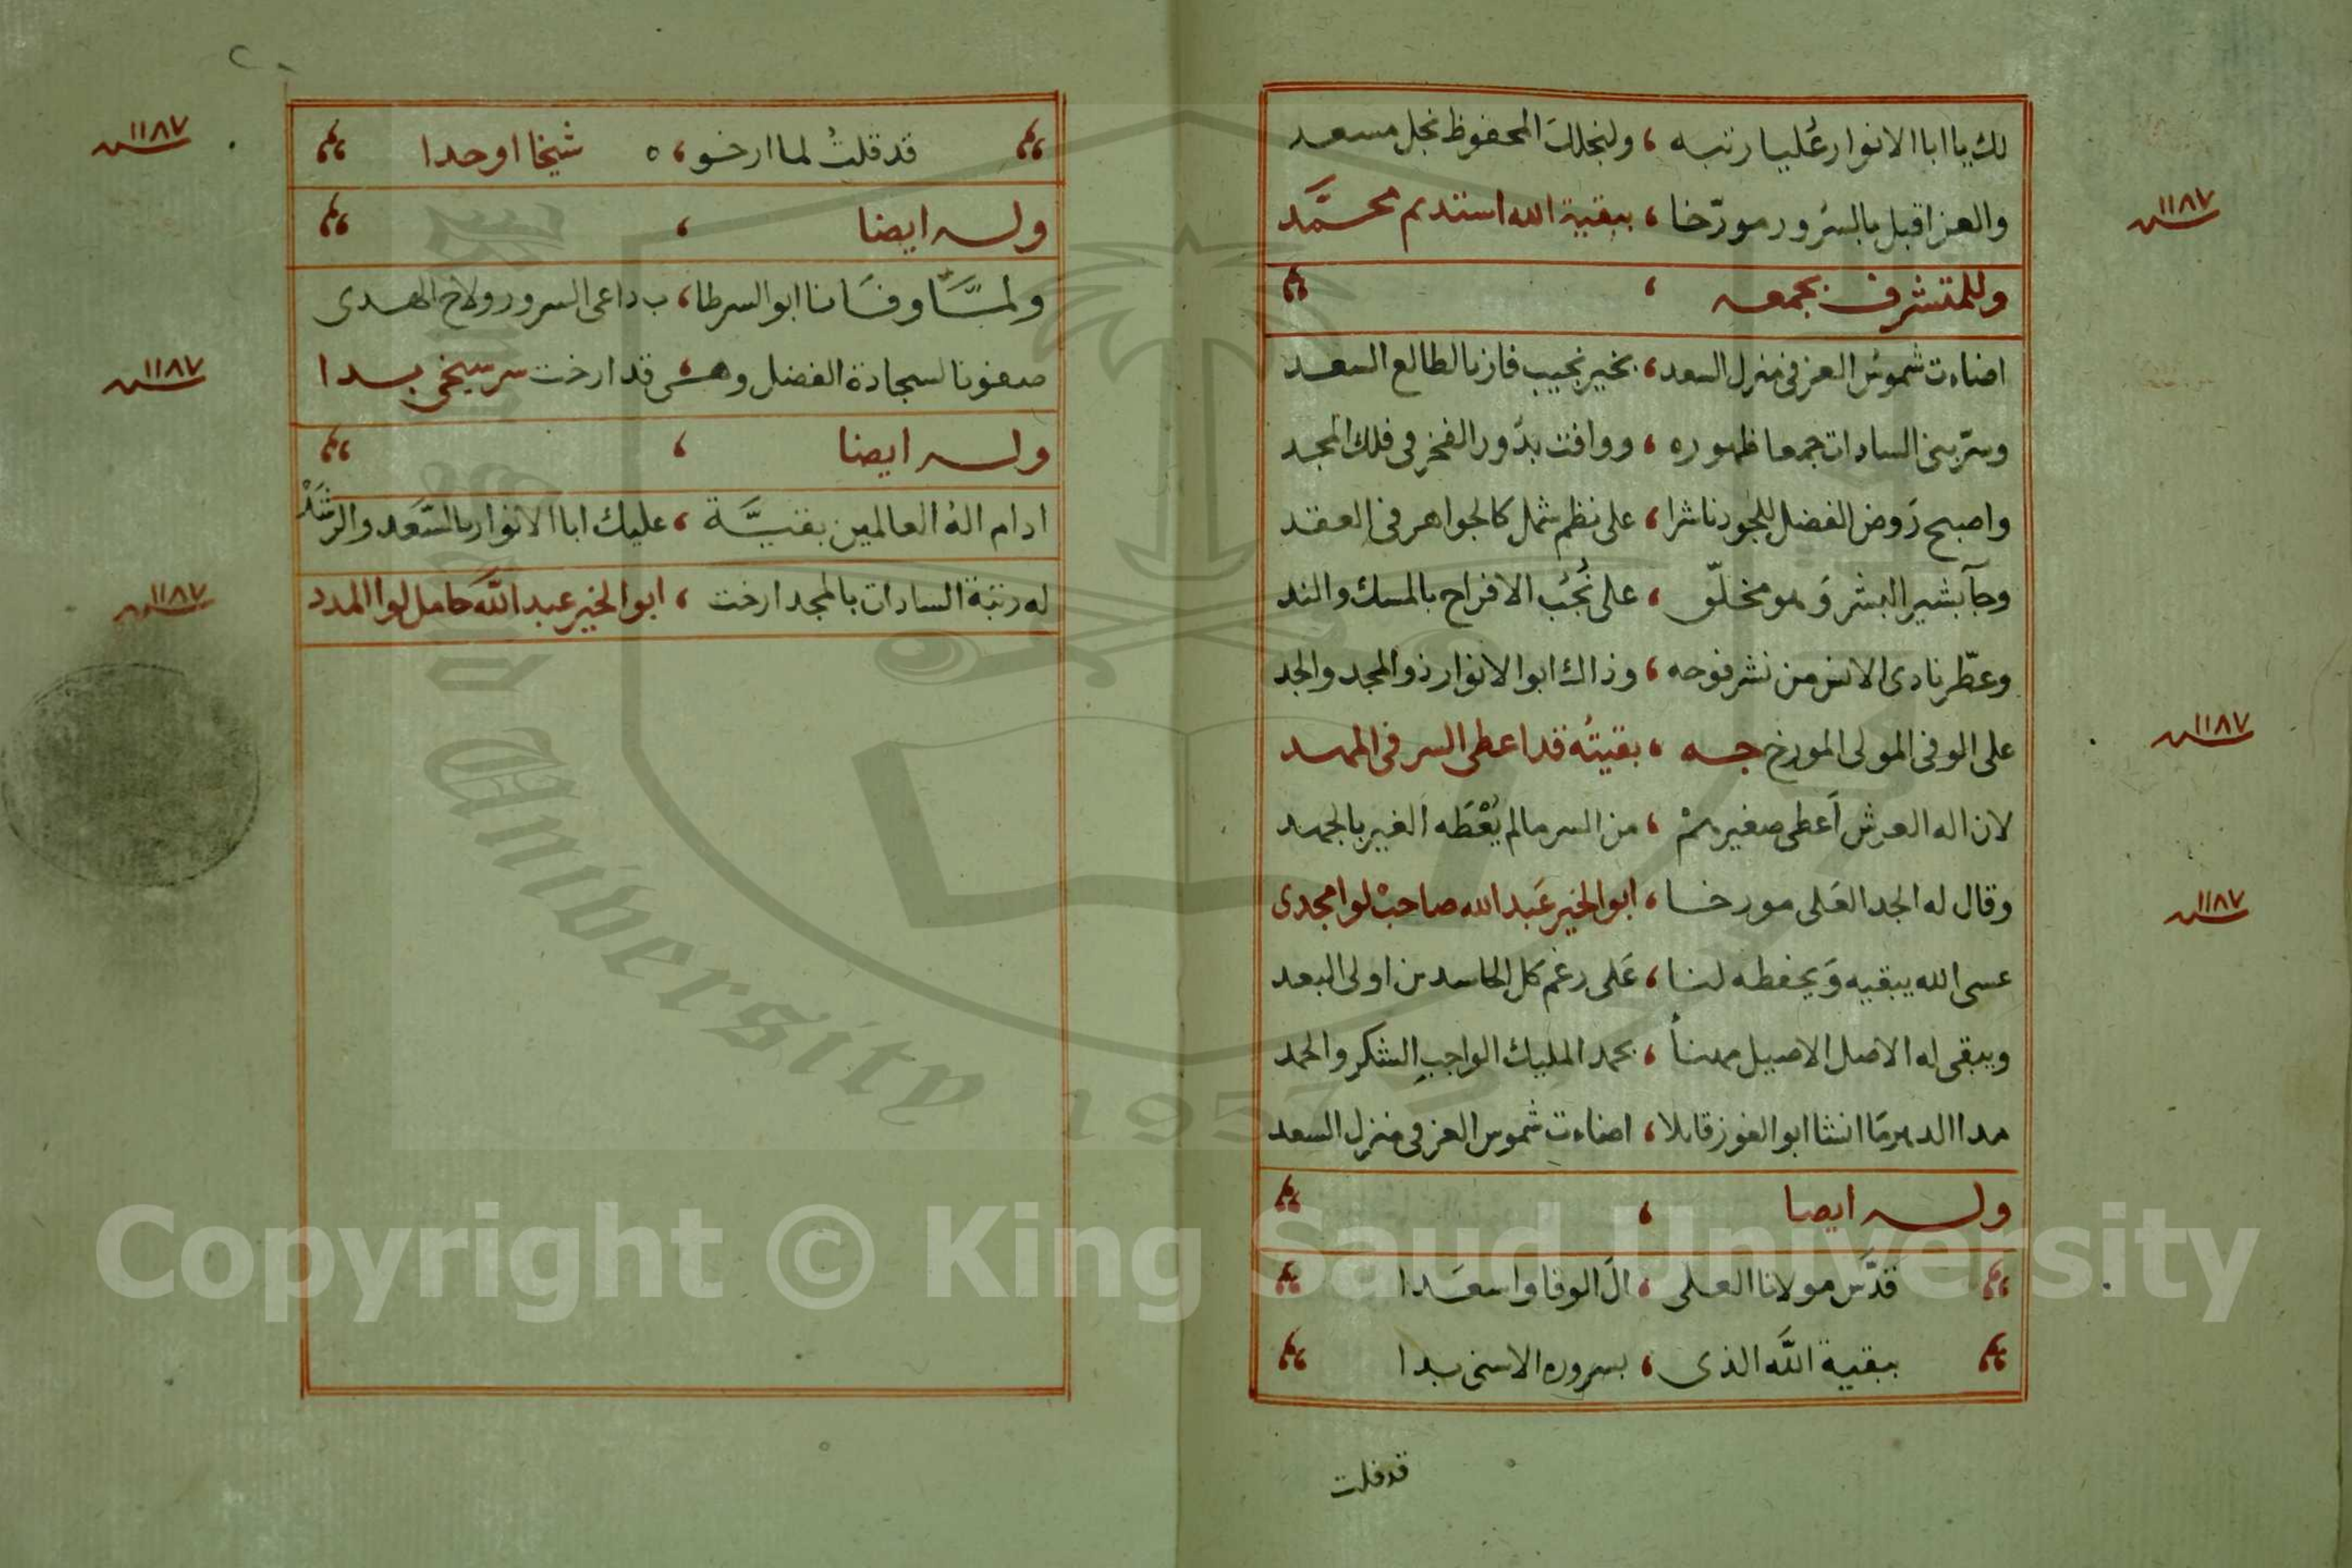 لك يا ابا الانوار عُليا رتبه ، ولنجلك المحفوظ نجل مسعد
سنة ١١٨٧
والعز اقبل بالسُرور مورّخا ، ببقية الله استديم محمَّد
وللمتشرف بجمعه ،
اضاءت شموسُ العز فى منزل السعد ، بخير نجيب فاز بالطالع السعد
وسرّ بنى السادات جمعا ظهوره ، ووافت بدُور الفخر فى فلك المجد
واصبح رَوض الفضل للجود ناشرا ، على نظم شمل كالجواهر فى العقد
وجآ بشير البشر وَهو مخلّق ، على نُجُب الافراح بالمسك والند
وعطّر نادى الانس من نشر فوحه ، وذاك ابو الانوار ذو المجد والجد
على الوفى المولى المورخ جه ، بقيتُه قد اعطى السر فى المهد
سنة ١١٨٧
لان اله العرش اَعطى صغيرهمْ ، من السر مالم يُعْطَه الغير بالجهد
وقال له الجد العَلى مورخا ، ابو الخير عَبد الله صاحبْ لوا مجدى
سنة ١١٨٧
عسى الله يبقيه وَيحفظه لنا ، عَلى رغم كل الحاسد من اولى البعد
ويبقى له الاصل الاصيل مهنأ ، بحمد المليك الواجب الشكر والحمد
مدا الدهر مَا انشا ابو الفوز قايلا ، اضاءت شموس العز فى منزل السعد
وله ايضا ،
قدَّس مولانا العلى ، الَ الوفا واسعَدا
ببقية اللَّه الذى ، بسروره الاسنى بدا
قد قلت
٢٠
قد قلتُ لما ارخو ، ه شيخا اوحدا
سنة ١١٨٧
وله ايضا ،
ولمَّا وفَانا ابو السر طا ، ب داعى السرور ولاح الهدى
صغونا لسجادة الفضل وهى ، قد ارخت سر سيخى بدا
سنة ١١٨٧
وله ايضا ،
ادام الهُ العالمين بقيَّة ، عليك ابا الانوار بالسَّعد والرشَدْ
له رتبة السادات بالمجد ارخت ، ابو الخير عبد اللَّه حامل لوا المدد
سنة ١١٨٧
Copyright © King Saud University
King Saud University
1957